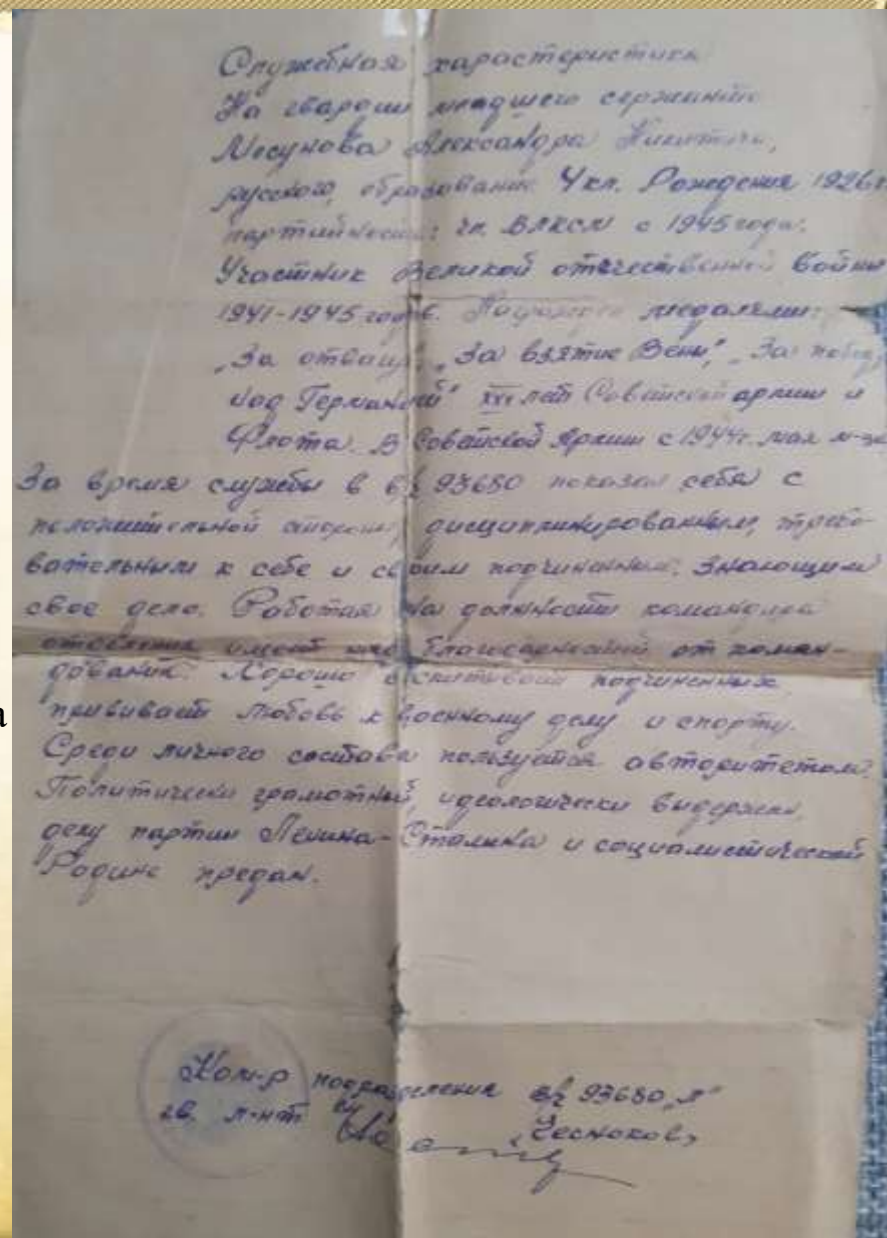 Служебная характеристика
На гвардии младшего сержанта
Мосунова Александра Никитича,
русского, образование 4 кл. Рождения 1926г
партийность: чл. ВЛКСМ с 1945 года.
Участник Великой отечественной войны
1941-1945 годов. Награжден медалями:
„За отвагу", „За взятие Вены", „За победу
над Германией" XXX лет Советской армии и
Флота. В Советской Армии с 1944г. мая м-ца
За время службы в в/ч 93680 показал себя с
положительной стороны, дисциплинированным, требо-
вательным к себе и своим подчиненным. Знающим
свое дело. Работая на должности командира
отделения имеет благодарностей от коман-
дования. Хорошо воспитывает подчиненных
прививает любовь к военному делу и спорту.
Среди личного состава пользуется авторитетом.
Политически грамотный, идеологически выдержан,
делу партии Ленина-Сталина и социалистической
Родине предан.
Ком-р подразделения в/ч 93680 „Л"
гв. л-нт Чесноков
а